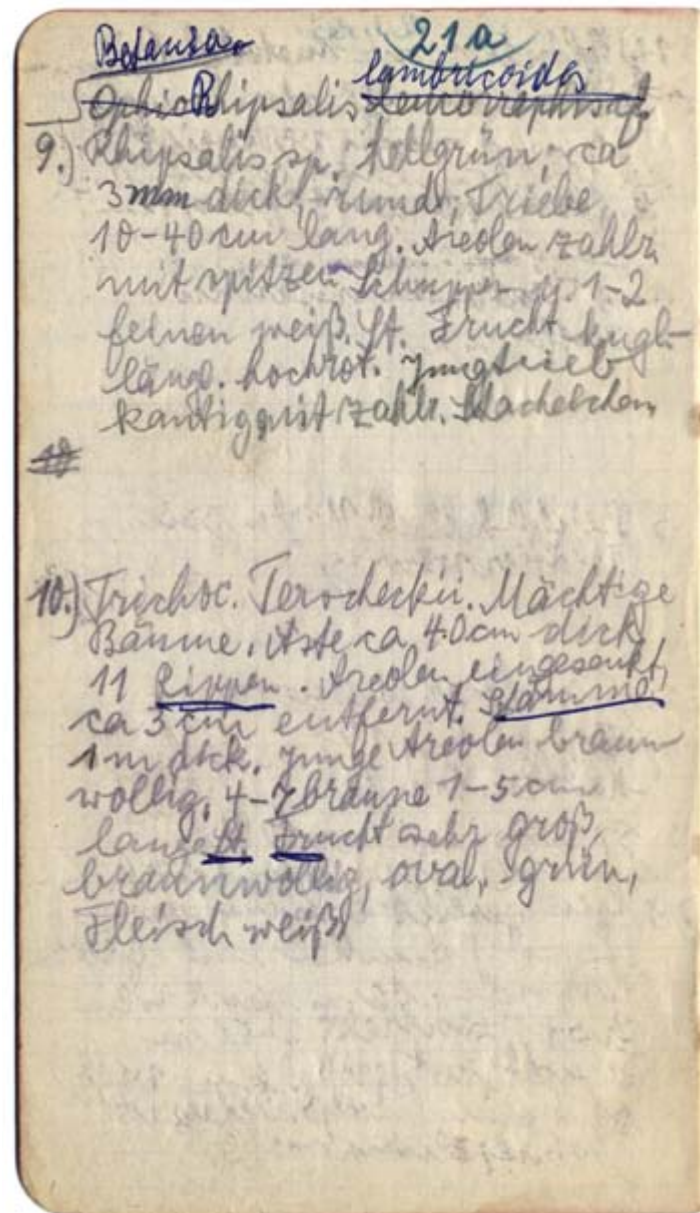 21a
lumbricoides
Rhipsalis
9.) Rhipsalis sp. hellgrün, ca
3mm dick, rund, Triebe
10-40 cm lang. Areolen zahlr.
mit spitzen Schuppen u. 1-2
feinen weiß. St. Frucht kugl.-
längl. hochrot. Jungtrieb
kantig mit zahlr. Stachelchen
10
10.) Trichoc. Terscheckii. Mächtige
Bäume, Äste ca 40cm dick,
11 Rippen. Areolen eingesenkt,
ca 3 cm entfernt. Stämme
1m dick. junge Areolen braun
wollig, 4-7 braune 1-5 cm
lange St. Frucht sehr groß,
braunwollig, oval, grün,
Fleisch weiß